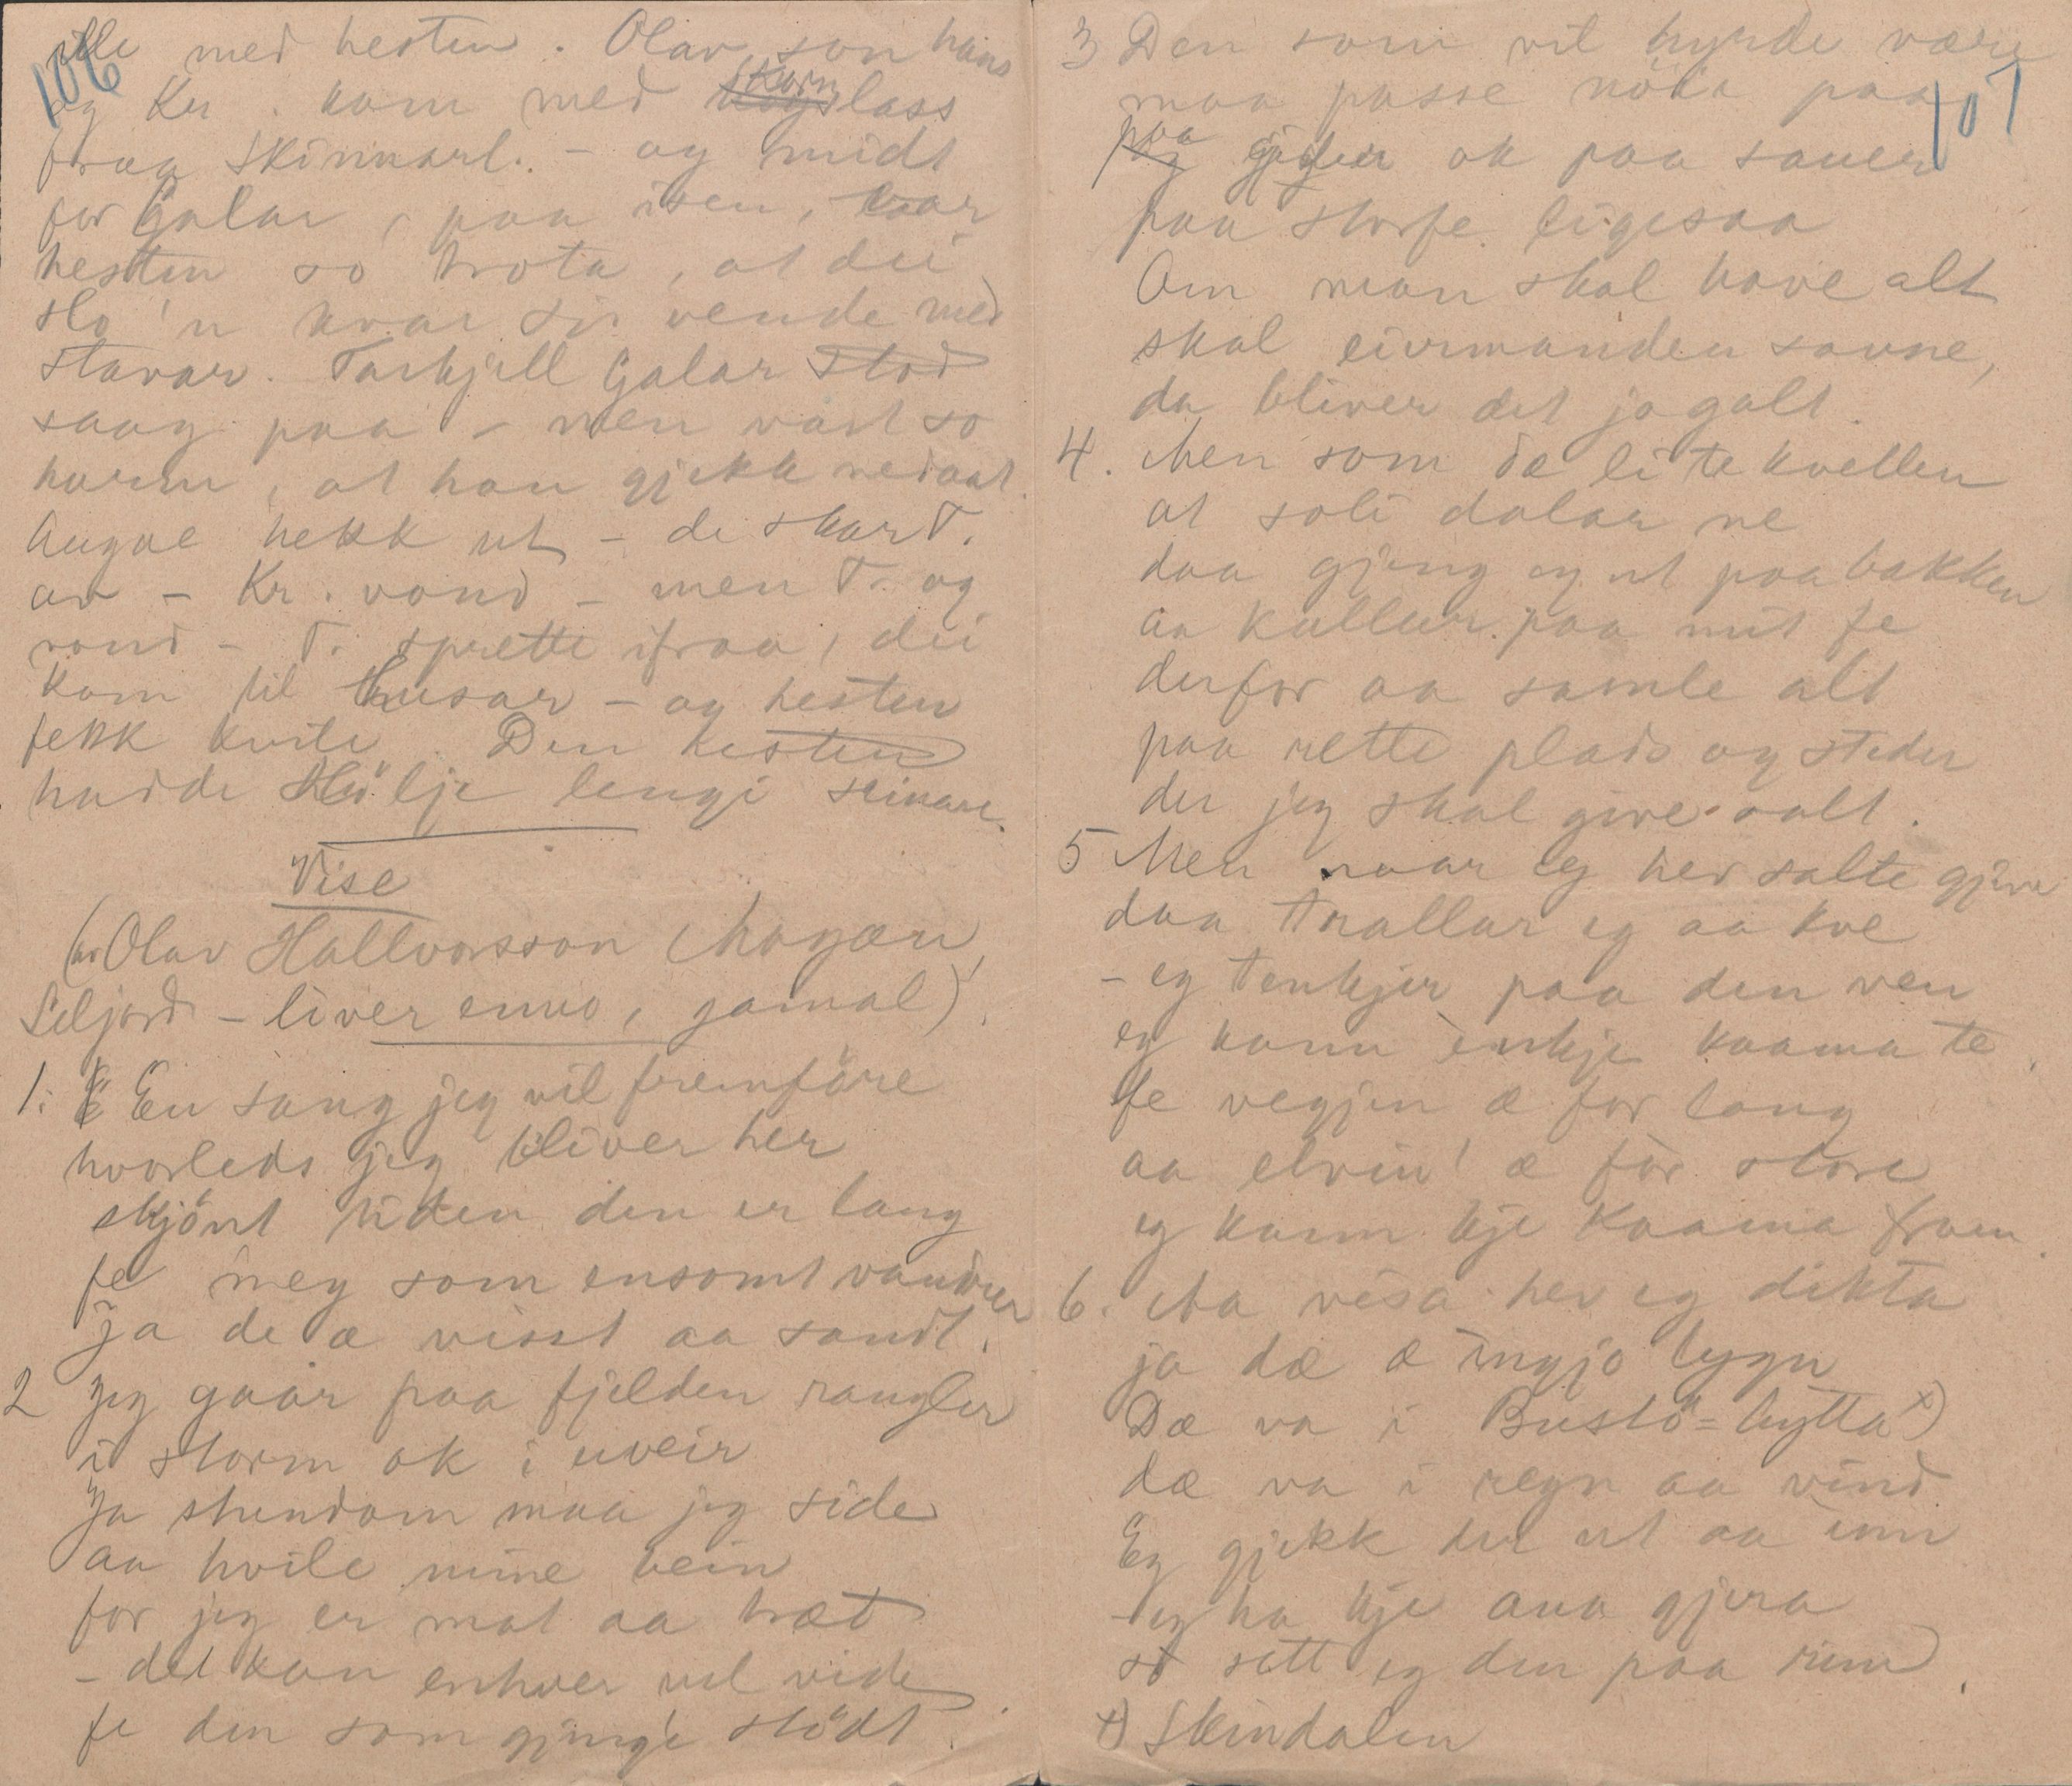 106
ille med hesten. Olav, son hans
og Kr. kom med kornlass
fraa Skinnarl. - og midt
for Galar, paa isen, var
hesten so trota, at dei
slo 'n kvar sin vende med
stavar. Tarkjell Galar stod
saag paa - men vart so
harm, at han gjekk nedaat.
Augae hekk ut - de skar T.
av - Kr. vond - men T. og
vond - T. sprette ifraa, dei
kom til husar - og hesten
fekk kvile. Den hesten
hadde Hölje lengi seinare.
Vise
(av Olav Hallvorsson Mogæn,
Seljord - liver enno, gamal).
1. En sang jeg vil fremföre
hvorleds jeg bliver her
skjönt tiden den er lang
fe meg som ensomt vandrer
ja de æ visst aa sandt.
2 Jeg gaar paa fjelden rangler
i storm ok i uveir
Ja stundom maa jeg side
aa hvile mine bein
for jeg er mat aa træt
- det kan enhver vel vide
fe den som gjenge stödt.
107
3 Den som vil hyrde være
maa passe nöie paa
paa gjeter ok paa sauer
paa storfe ligesaa
Om man skal have alt
skal eiermanden savne,
da bliver det jo galt.
4. Men som dæ li te kvellen
at soli dalar ne
daa gjeng eg ut paa bakken
aa kallar paa mit fe
derfor aa samle alt
paa rette plads og steder
der jeg skal give salt.
5 Men naar eg hev salte gjeve
daa trallar eg aa kve
- eg tenkjer paa den ven
eg kann inkje kaama te.
fe vegjen æ for lang
aa elvin' æ for store
eg kann kje kaama fram.
6. Aa visa hev eg dikta
ja dæ æ ingjo lygn
Dæ va i Buslö=hytta x)
dæ va i regn aa vind
Eg gjekk der ut aa inn
- eg ha kje ana gjera
so sett eg den paa rim.
x) Skindalen